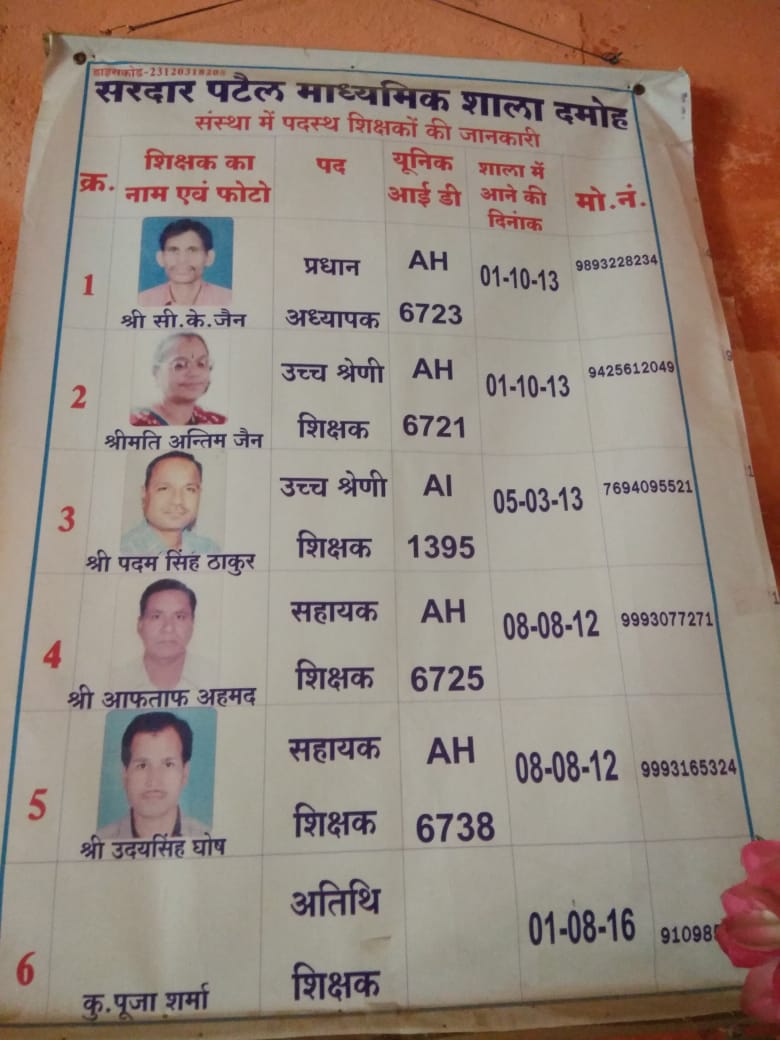 डाइसकोड-23120318205
सरदार पटैल माध्यमिक शाला दमोह
संस्था में पदस्थ शिक्षकों की जानकारी
क्र. शिक्षक का नाम एवं फोटो पद यूनिक आई डी शाला में आने की दिनांक मो.नं.
1 श्री सी.के.जैन प्रधान अध्यापक AH 6723 01-10-13 9893228234
2 श्रीमति अन्तिम जैन उच्च श्रेणी शिक्षक AH 6721 01-10-13 9425612049
3 श्री पदम सिंह ठाकुर उच्च श्रेणी शिक्षक AI 1395 05-03-13 7694095521
4 श्री आफताफ अहमद सहायक शिक्षक AH 6725 08-08-12 9993077271
5 श्री उदयसिंह घोष सहायक शिक्षक AH 6738 08-08-12 9993165324
6 कु.पूजा शर्मा अतिथि शिक्षक 01-08-16 91098